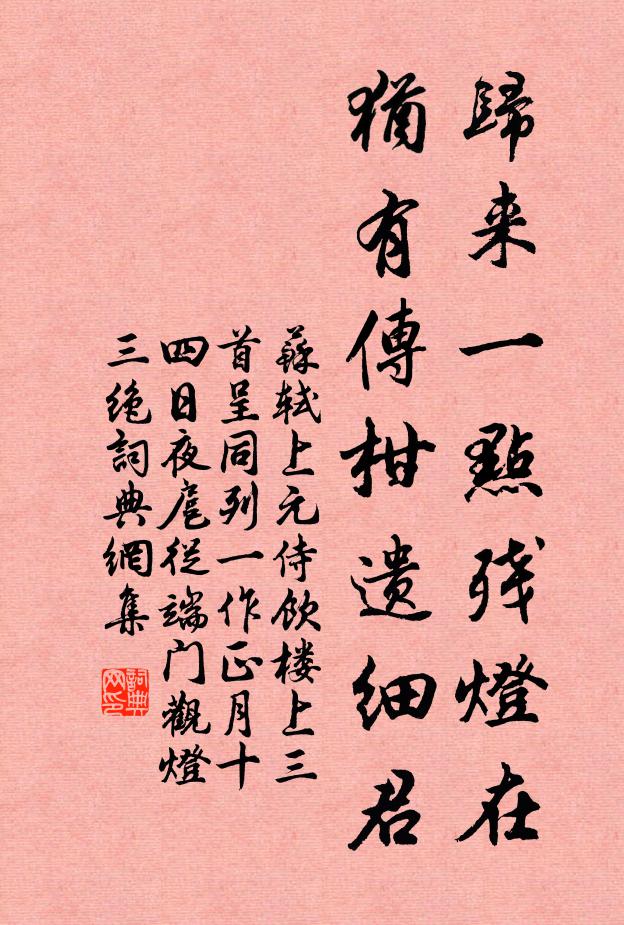 歸来一點残燈在
猶有傳柑遺細君
蘇軾上元侍飲楼上三
首呈同列一作正月十
四日夜扈從端门觀燈
三絶詞典網集
詞典
网印